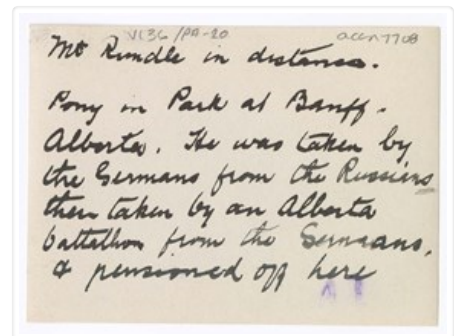 V136/PA-20
accn 7708
Mt Rundle in distance.
Pony in Park at Banff-
Alberta. He was taken by
the Germans from the Russians
then taken by an Alberta
battalhon from the Germans,
& pensioned off here